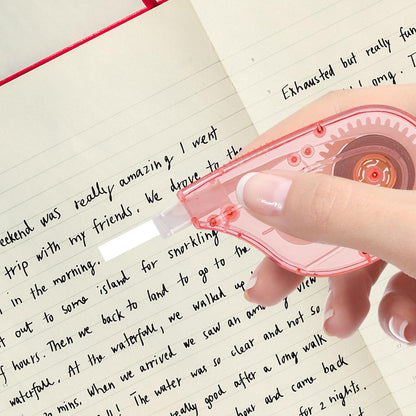 eekend was really amazing I went
trip with my friends. We drove to the
n in the morning.
t out to some island for snorkling
f hours. Then we back to land to go to the
waterfall. At the waterfall, we walked up
mins. when we arrived we saw an amazing view
ll! The water was so clear and not so
really good after a long walk
hour and came back
for 2 nights.
Exhausted but really fun
omg. T